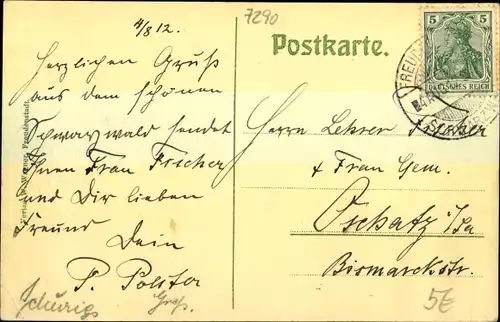 4/8 12.
7290
Postkarte.
5 5
DEUTSCHES REICH
FREUD
Herzlichen Gruß
aus dem schönen
Schwarzwald sendet
Ihnen Frau Fischer
und Dir lieben
Freund
Dein
P. Polster
Herrn Lehrer Fischer
+ Frau Gem.
Oschatz i/Sa
Bismarckstr.
Freudenstadt.
5€